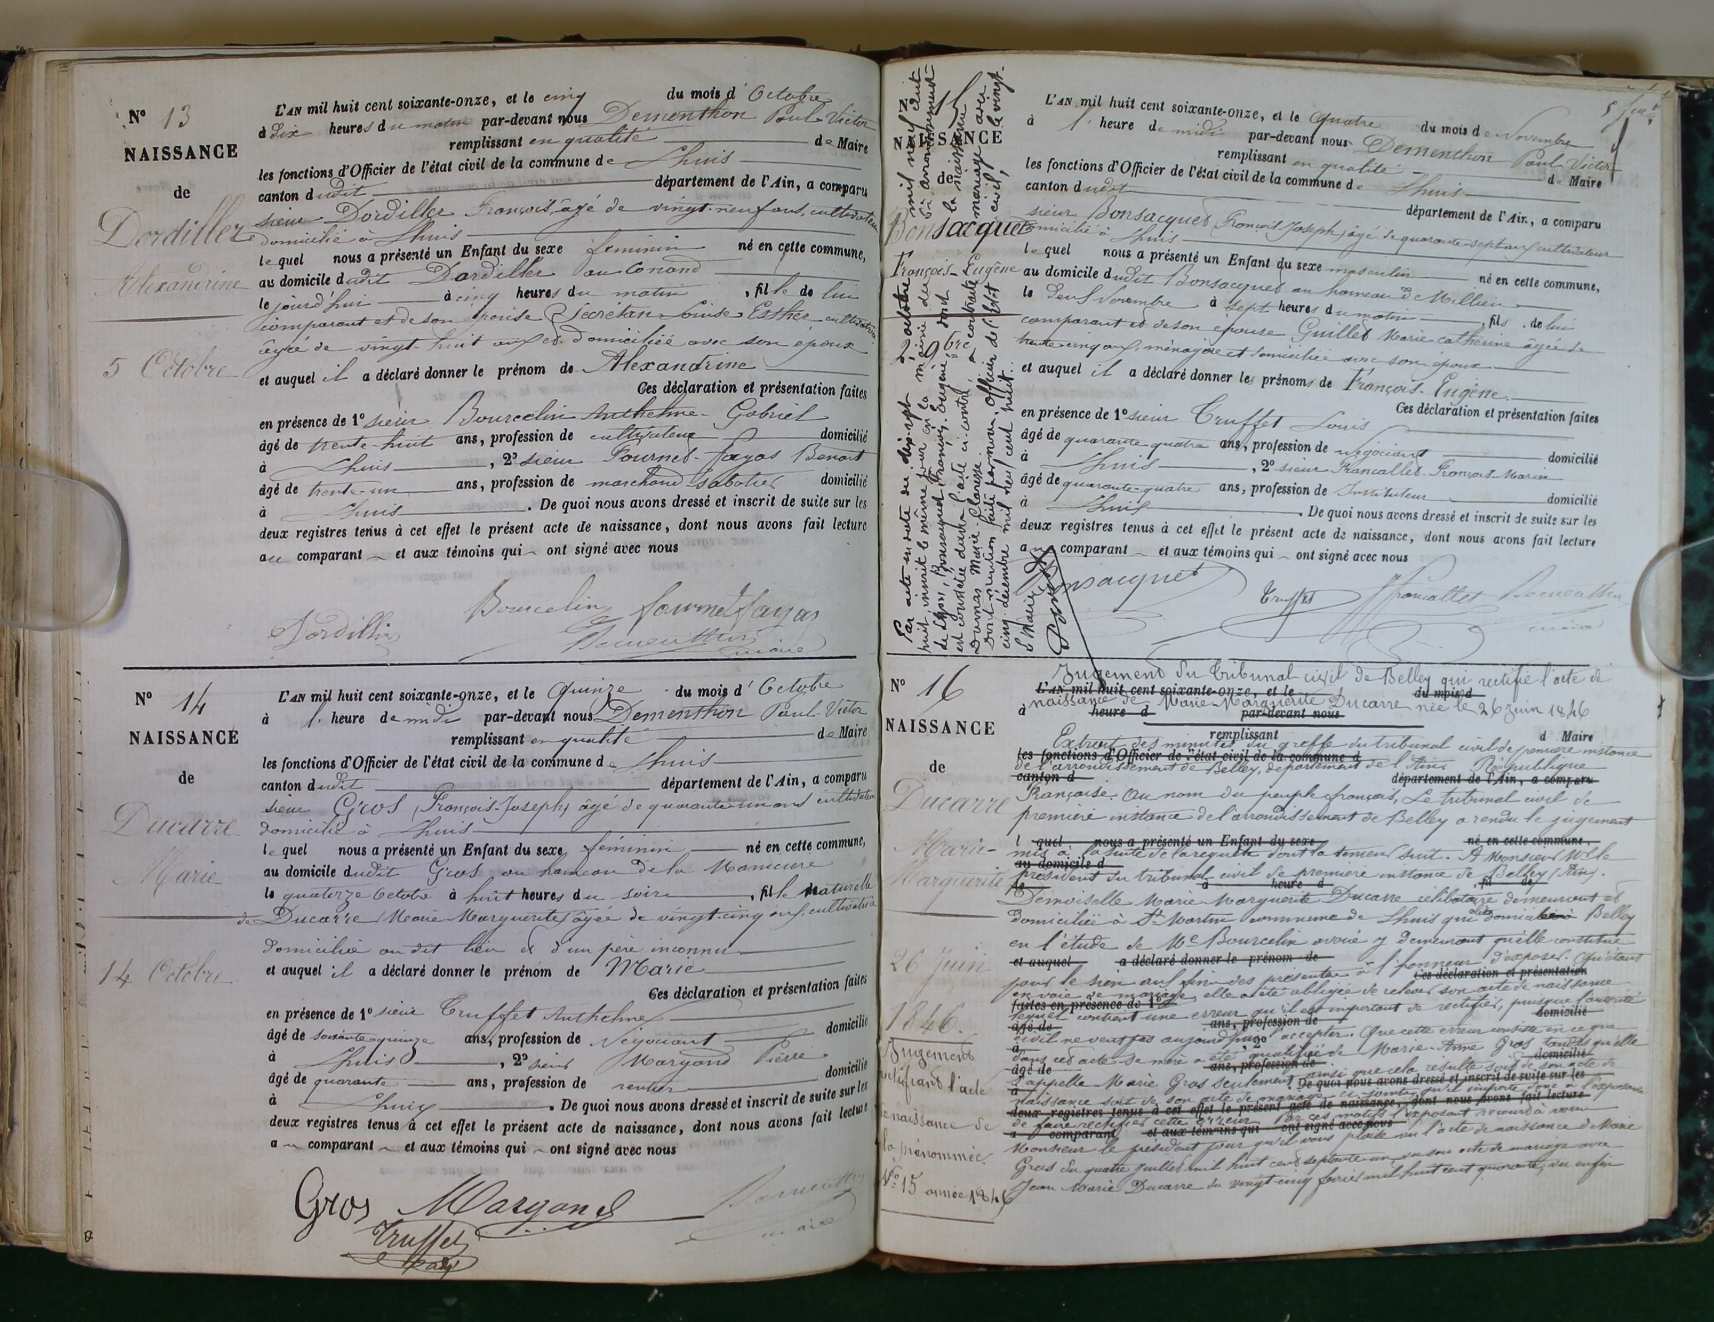 N° 13
NAISSANCE
de
Dordillet
Alexandrine
5 Octobre
L'AN mil huit cent soixante-onze, et le cinq du mois d'Octobre
à dix heures du matin par-devant nous Dementhon Paul Victor
remplissant en qualité de Maire
les fonctions d'Officier de l'état civil de la commune de Lhuis
canton dudit département de l'Ain, a comparu
sieur Dordillet François, âgé de vingt-neuf ans, cultivateur
domicilié à Lhuis
lequel nous a présenté un Enfant du sexe féminin né en cette commune,
au domicile dudit Dordillet au
le jourd'hui à cinq heures du matin, fille de lui
comparant et de son épouse Secretan Louise Esther, cultivatrice
âgée de vingt-huit ans et domiciliée avec son époux
et auquel il a déclaré donner le prénom de Alexandrine
Ces déclaration et présentation faites
en présence de 1° sieur Bourcelin Anthelme-Gabriel
âgé de trente-huit ans, profession de cultivateur domicilié
à Lhuis, 2° sieur Fournet-Fayas Benoit
âgé de trente-un ans, profession de marchand sabotier domicilié
à Lhuis. De quoi nous avons dressé et inscrit de suite sur les
deux registres tenus à cet effet le présent acte de naissance, dont nous avons fait lecture
au comparant et aux témoins qui ont signé avec nous
Bourcelin Fournet Fayas
Dordillet Dementhon
maire
N° 14
NAISSANCE
de
Ducarre
Marie
14 Octobre
L'AN mil huit cent soixante-onze, et le Quinze du mois d'Octobre
à 1 heure de midi par-devant nous Dementhon Paul-Victor
remplissant en qualité de Maire
les fonctions d'Officier de l'état civil de la commune de Lhuis
canton dudit département de l'Ain, a comparu
sieur Gros François-Joseph, âgé de quarante-un ans cultivateur
domicilié à Lhuis
lequel nous a présenté un Enfant du sexe féminin né en cette commune,
au domicile dudit Gros, au hameau de la
le quatorze Octobre à huit heures du soir, fille naturelle
de Ducarre Marie Marguerite, âgée de vingt-cinq ans, cultivatrice
domiciliée au dit lieu et d'un père inconnu
et auquel il a déclaré donner le prénom de Marie
Ces déclaration et présentation faites
en présence de 1° sieur Truffet Anthelme
âgé de soixante-quinze ans, profession de Négociant domicilié
à Lhuis, 2° sieur Margand Pierre
âgé de quarante ans, profession de rentier domicilié
à Lhuis. De quoi nous avons dressé et inscrit de suite sur les
deux registres tenus à cet effet le présent acte de naissance, dont nous avons fait lecture
a comparant et aux témoins qui ont signé avec nous
Gros Margand Dementhon
Truffet maire
15
NAISSANCE
de
Bonsacquet
François-Eugène
2 9bre
Par acte en date du dix-sept octobre mil neuf cent
huit, inscrit le même jour en la mairie du
de Lyon, Bonsacquet François Eugène, dont la naissance
est constatée dans l'acte ci-contre, a contracté mariage avec
Dumas Marie-Claresse.
Dont mention faite par nous, Officier de l'état civil, le vingt-
cinq décembre mil neuf cent huit.
L'AN mil huit cent soixante-onze, et le Quatre du mois de Novembre
à 1 heure de midi par-devant nous Dementhon Paul Victor
remplissant en qualité de Maire
les fonctions d'Officier de l'état civil de la commune de Lhuis
canton dudit département de l'Ain, a comparu
sieur Bonsacquet François Joseph, âgé de quarante-sept ans, cultivateur
domicilié à Lhuis
lequel nous a présenté un Enfant du sexe masculin né en cette commune,
au domicile dudit Bonsacquet au hameau de Millieu
le deux Novembre à sept heures du matin, fils de lui
comparant et de son épouse Guillet Marie Catherine âgée de
trente-cinq ans, ménagère et domiciliée avec son époux
et auquel il a déclaré donner les prénoms de François-Eugène
Ces déclaration et présentation faites
en présence de 1° sieur Truffet Louis
âgé de quarante-quatre ans, profession de négociant domicilié
à Lhuis, 2° sieur Francallet François Marin
âgé de quarante-quatre ans, profession de Instituteur domicilié
à Lhuis. De quoi nous avons dressé et inscrit de suite sur les
deux registres tenus à cet effet le présent acte de naissance, dont nous avons fait lecture
a comparant et aux témoins qui ont signé avec nous
Bonsacquet Truffet Francallet Dementhon
maire
N° 16
NAISSANCE
de
Ducarre
Marie-
Marguerite
26 Juin
1846.
Jugement
rectifiant l'acte
de naissance de
la prénommée
N° 15 année 1846
Jugement du Tribunal civil de Belley qui rectifie l'acte de
L'AN mil huit cent soixante-onze, et le du mois d
naissance de Marie-Marguerite Ducarre née le 26 juin 1846
à heure d par-devant nous
remplissant d Maire
Extrait des minutes du greffe du tribunal civil de première instance
les fonctions d'Officier de l'état civil de la commune d
de l'arrondissement de Belley, département de l'Ain. République
canton d département de l'Ain, a comparu
Française. Au nom du peuple français, Le tribunal civil de
première instance de l'arrondissement de Belley a rendu le jugement
l quel nous a présenté un Enfant du sexe né en cette commune,
mis à la suite de la requête dont la teneur suit. A Monsieur le
au domicile d
président du tribunal civil de première instance de Belley, Ain.
le à heure d , fil de
Demoiselle Marie Marguerite Ducarre célibataire demeurant et
domiciliée à St Martin commune de Lhuis Belley
en l'étude de Me Bourcelin avoué y demeurant qu'elle constitue
et auquel a déclaré donner le prénom de
pour le sien aux fins des présentes a l'honneur d'exposer. Qu'étant
Ces déclaration et présentation
en voie de mariage, elle a été obligée de relever son acte de naissance
faites en présence de 1°
lequel contient une erreur qu'il est important de rectifier, puisque l'autorité
domicilié
âgé de ans, profession de
civile ne veut pas aujourd'hui l'accepter. Que cette erreur consiste en ce que
dans cet acte sa mère a été qualifiée de Marie-Anne Gros tandis qu'elle
âgé de ans, profession de domicilié
s'appelle Marie Gros seulement, ainsi que cela résulte soit de son acte de
à De quoi nous avons dressé et inscrit de suite sur les
naissance soit de son acte de mariage
deux registres tenus à cet effet le présent acte de naissance, dont nous avons fait lecture
de faire rectifier cette erreur. Par ces motifs l'exposant recourt à vous
a comparant et aux témoins qui ont signé avec nous
Monsieur le président pour qu'il vous plaise vu l'acte de naissance de Marie
Gros du quatre juillet mil huit cent vu son acte de mariage avec
Jean Marie Ducarre du vingt cinq mil huit cent quarante, vu enfin